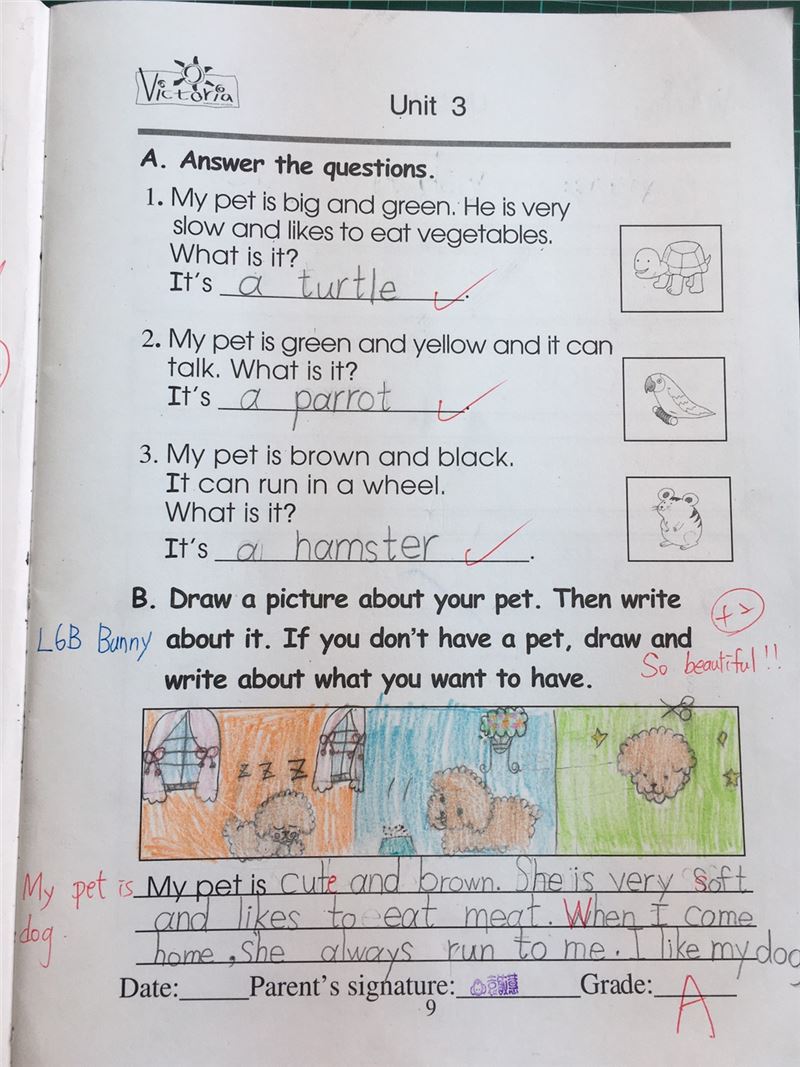 Victoria
Unit 3
A. Answer the questions.
1. My pet is big and green. He is very
slow and likes to eat vegetables.
What is it?
It's a turtle.
2. My pet is green and yellow and it can
talk. What is it?
It's a parrot.
3. My pet is brown and black.
It can run in a wheel.
What is it?
It's a hamster.
B. Draw a picture about your pet. Then write
L6B Bunny about it. If you don't have a pet, draw and
write about what you want to have.
+2
So beautiful!!
z z z
My pet is My pet is cute and brown. She is very soft
dog. and likes to eat meat. When I come
home, she always run to me. I like my dog
Date: Parent's signature: Grade: A
9